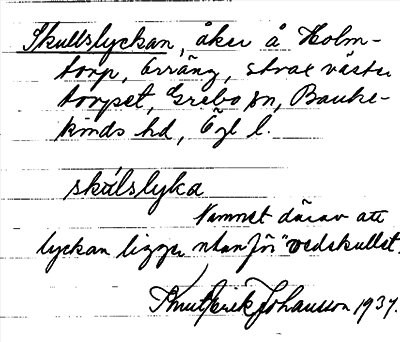 Skullslyckan, åker å Holm-
torp, Orräng, strax väster
torpet, Grebo sn, Banke-
kinds hd, Ögl l.
skúlslyka
Namnet därav att
lyckan ligger utanför "vedskullet.
Knut Erik Johansson 1937.